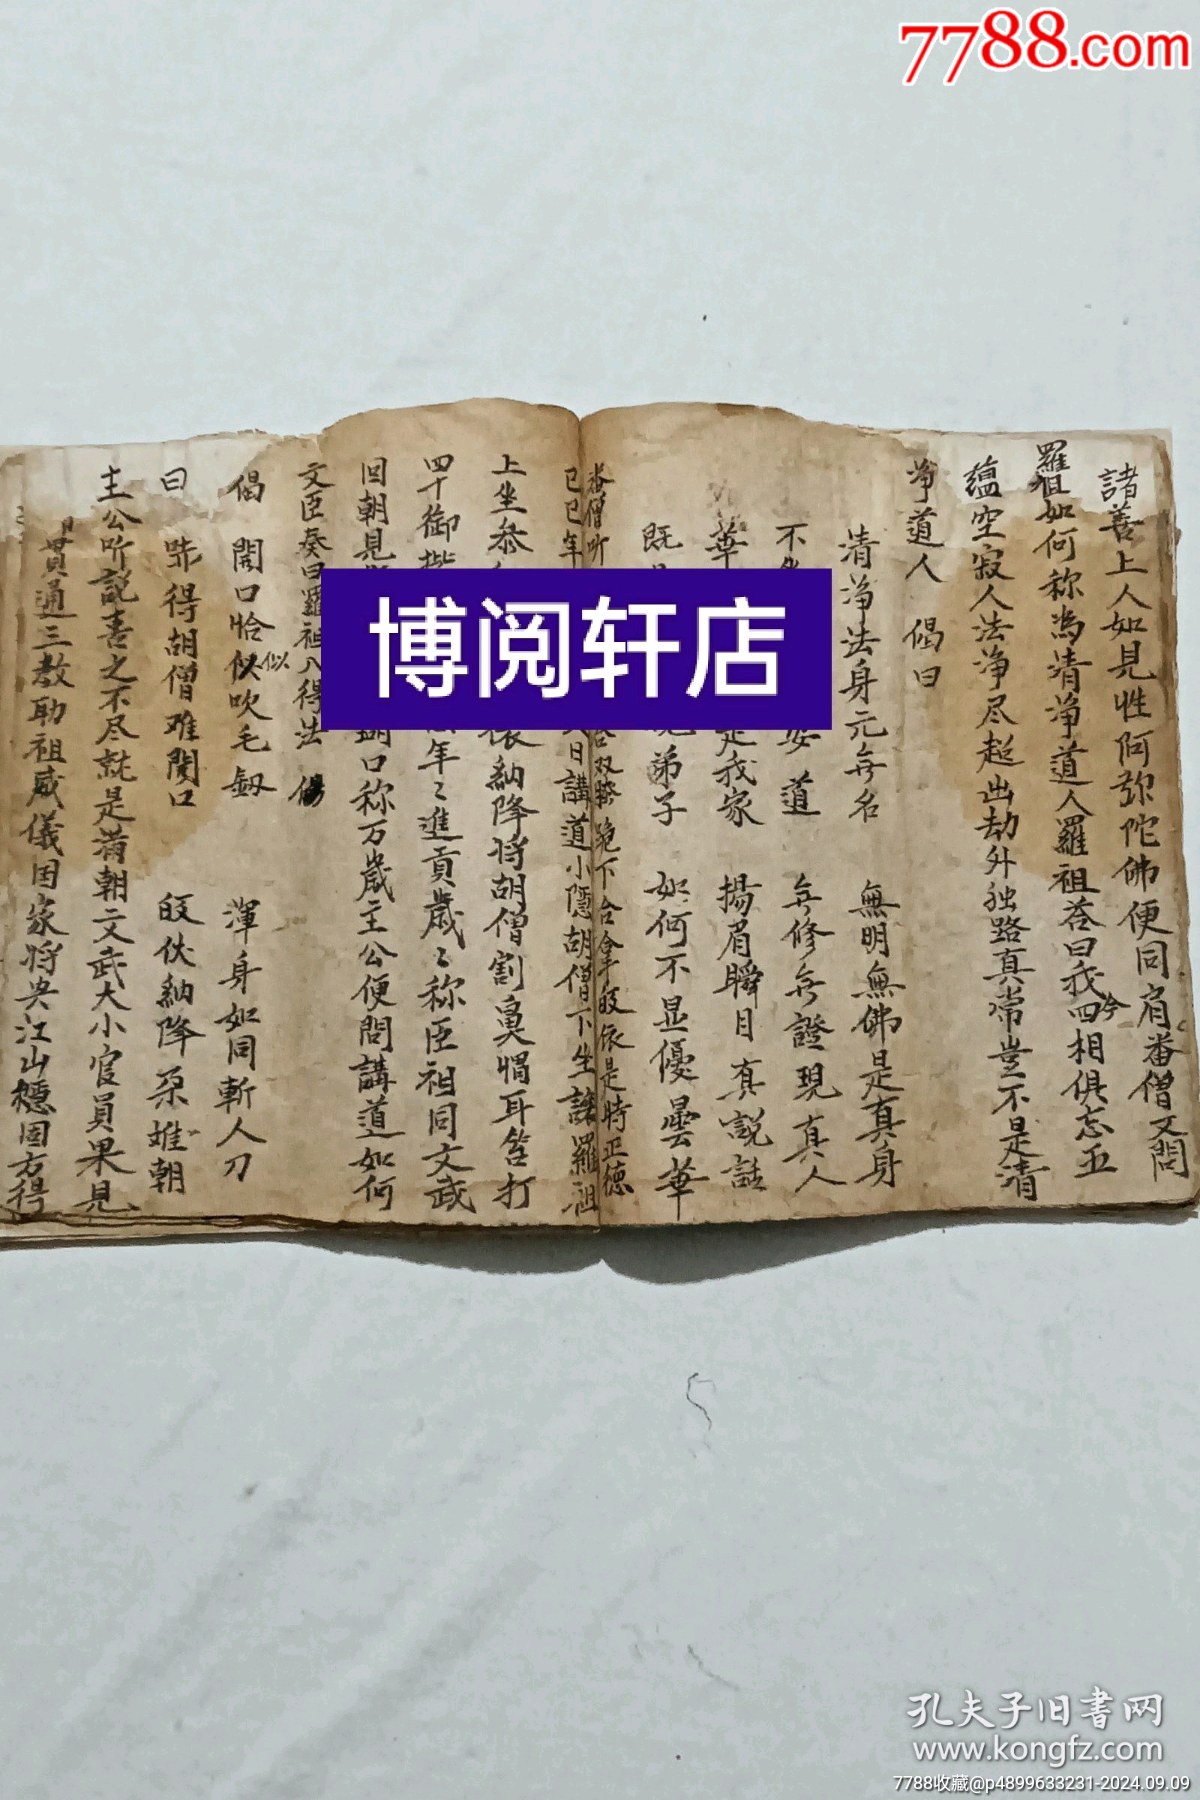 7788.com
諸善上人如見性阿弥陀佛便同肩番僧又問
羅祖如何称為清淨道人羅祖荅曰我今四相俱忘五
蕴空寂人法淨尽超出劫外独路真常豈不是清
淨道人 偈曰
清淨法身元無名 無明無佛是真身
不 道 無修無證現真人
華 是我家 揚眉瞬目真説話
既 弟子 如何不显優曇華
番僧听 双膝跪下合拿皈依是時正德
己巳年 日講道小隱胡僧下坐讓羅祖
上坐恭 納降将胡僧割鼻 耳 打
四十御 年〻進貢歲〻称臣祖同文武
回朝見 口称万歲主公便問講道如何
文臣奏曰羅祖八得法 偈
偈 開口恰似似吹毛劒 渾身如同斬人刀
曰 唬得胡僧难開口 皈伏納降 朝
主公听説喜之不尽就是满朝文武大小官員果見
貫通三教助祖威儀国家将央江山穩固方得
博阅轩店
孔夫子旧書网
www.kongfz.com
7788收藏@p4899633231-2024.09.09